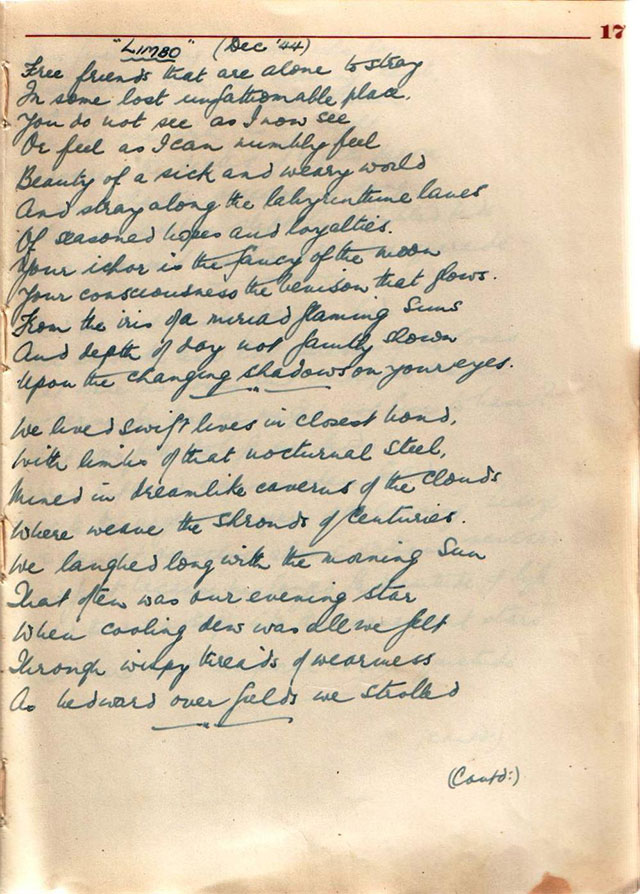 17
"LIMBO" (Dec '44)
Free friends that are alone to stray
In some lost unfathomable place,
You do not see as I now see
Or feel as I can numbly feel
Beauty of a sick and weary world
And stray along the labyrinthine lanes
Of seasoned hopes and loyalties.
Your ichor is the fancy of the moon
Your consciousness the benison that flows.
From the iris of a miriad flaming Suns
And depth of day not faintly shown
Upon the changing shadows on your eyes.
We lived swift lives in closest bond,
With limbs of that nocturnal steel,
Mined in dreamlike caverns of the clouds
Where weave the shrouds of Centuries.
We laughed long with the morning Sun
That often was our evening star
When cooling dew was all we felt
Through wispy threads of weariness
As bedward over fields we strolled
(Contd:)